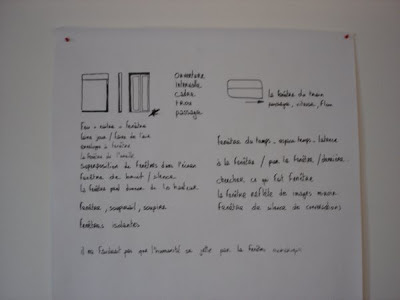 ouverture
intervalle
cadre
trou
passage
la fenêtre du train
paysage, vitesse, flou
faire jour / faire de l'air
enveloppe à fenêtre
la fenêtre de l'oreille
superposition de fenêtres dans l'écran
fenêtre du bruit / silence
la fenêtre peut donner de la hauteur.
fenêtre, soupirail, soupire
fenêtres isolantes
fenêtre du temps, espace temps, latence
à la fenêtre / par la fenêtre / derrière
chercher ce qui fait fenêtre
la fenêtre reflète des images miroir
fenêtre du silence de conversations
il ne faudrait pas que l'humanité se jette par la fenêtre